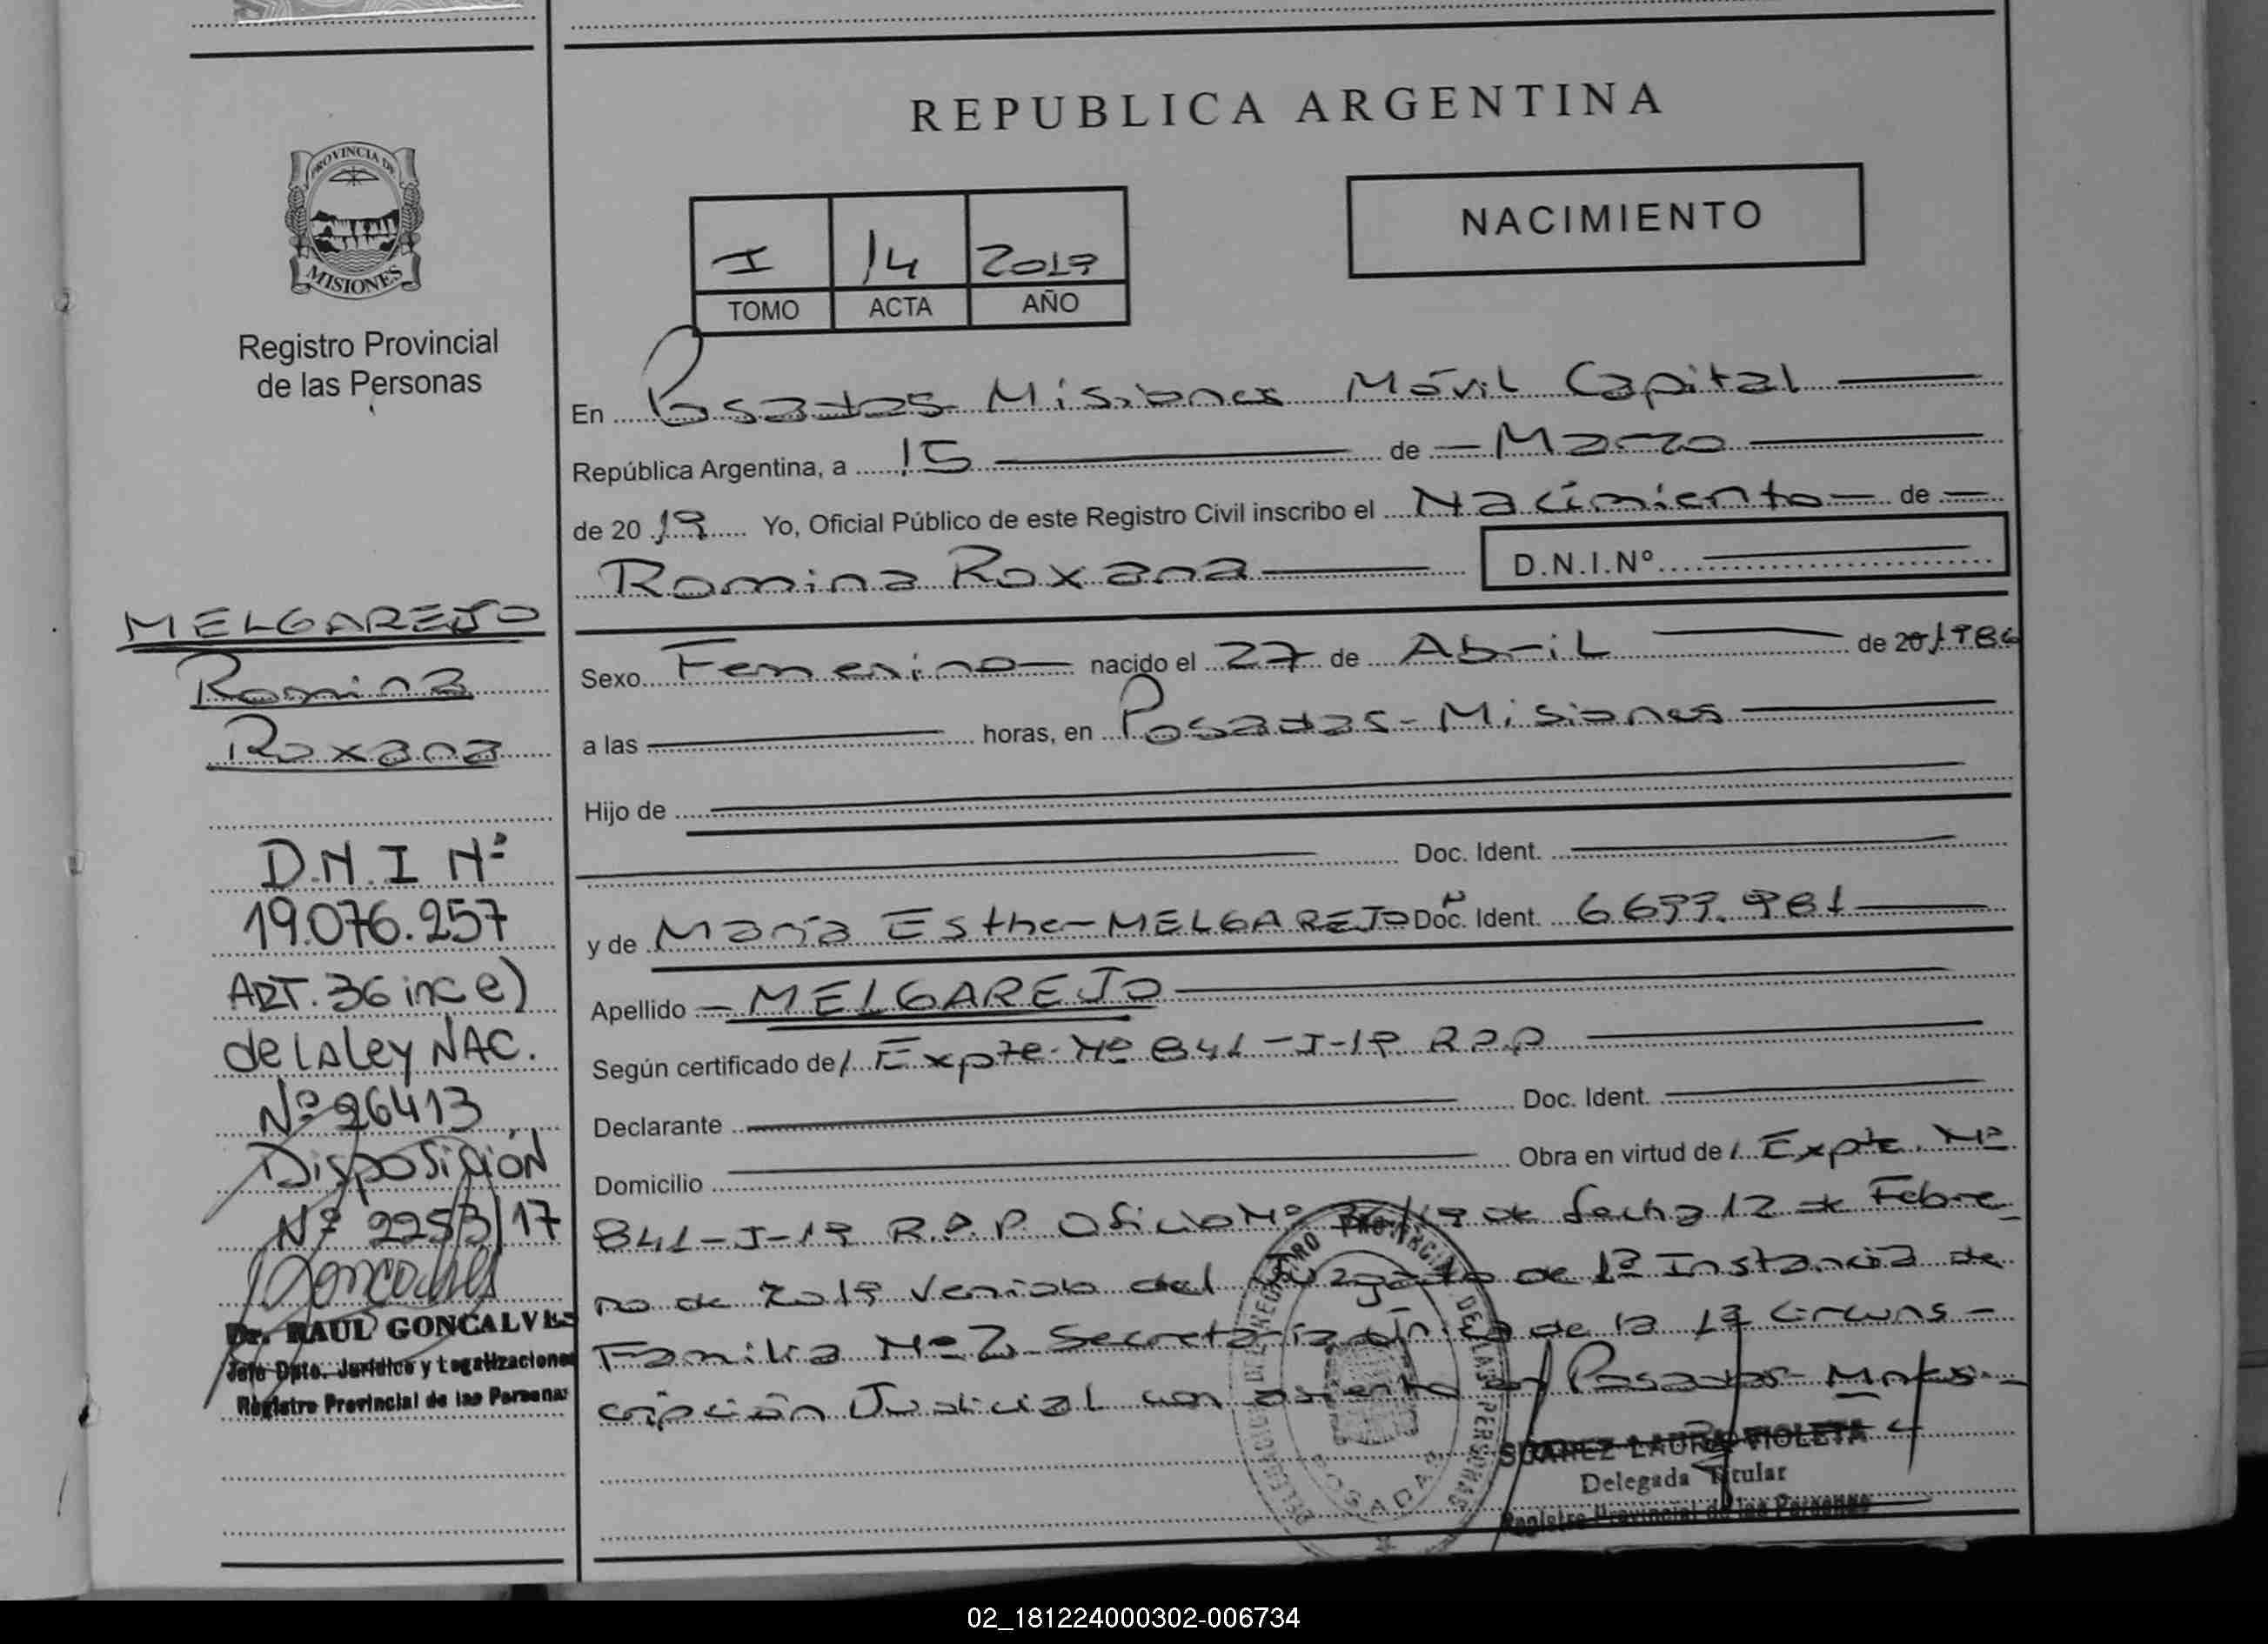 REPUBLICA ARGENTINA
NACIMIENTO
I 14 2019
TOMO ACTA AÑO
PROVINCIA DE
MISIONES
Registro Provincial
de las Personas
MELGAREJO
Romina
Roxana
D.N.I Nº
19.076.257
ART. 36 inc e)
de La Ley NAC.
Nº 26413
Disposición
Nº 2253/17
Dr. RAUL GONCALVES
Jefe Dpto. Jurídico y Legalizaciones
Registro Provincial de las Personas
En Posadas Misiones Móvil Capital
República Argentina, a 15 de Marzo
de 2019 Yo, Oficial Público de este Registro Civil inscribo el Nacimiento de
Romina Roxana D.N.I.Nº
Sexo Femenino nacido el 27 de Abril de 20/1986
a las horas, en Posadas - Misiones
Hijo de
Doc. Ident.
y de María Esther MELGAREJO Doc. Ident. 6.699.981
Apellido MELGAREJO
Según certificado de/ Expte. Nº 841-I-19 R.P.P
Declarante Doc. Ident.
Domicilio Obra en virtud de/ Expte. Nº
841-I-19 R.P.P. Oficio Nº /19 de fecha 12 de Febre
ro de 2019 venido del Juzgado de 1ª Instancia de
Familia Nº 2 Secretaría Única de la 1ª Circuns-
cripción Judicial con asiento en Posadas Mnes
SUAREZ LAURA VIOLETA
Delegada Titular
Registro Provincial de las Personas
POSADAS
02_181224000302-006734